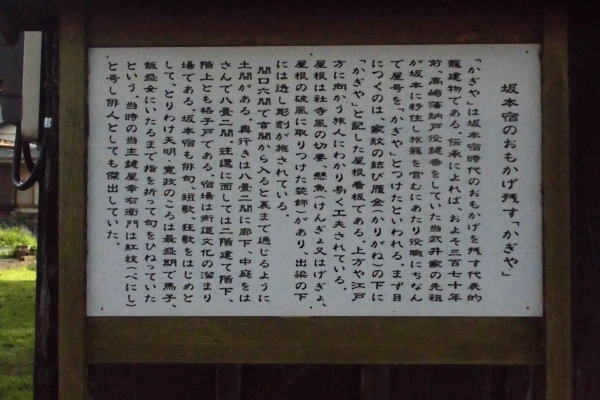 坂本宿のおもかげ残す「かぎや」
「かぎや」は坂本宿時代のおもかげを残す代表的
籠建物である。伝承によれば、およそ三百七十年
前、高崎藩納戸役鍵番をしていた当武井家の先祖
が坂本に移住し旅籠を営むにあたり役職にちなん
で屋号を、「かぎや」とつけたといわれる。まず目
につくのは、家紋の結び雁金(かりがね)の下に
「かぎや」と記した屋根看板である。上方や江戸
方に向かう旅人にわかり易く工夫されている。
屋根は社寺風の切妻、懸魚(けんぎょ又はげぎょ、
屋根の破風に取りつけた装飾)があり、出梁の下
には透し彫刻が施されている。
間口六間で玄関から入ると裏まで通じるように
土間がある。奥行きは八畳二間に廊下、中庭をは
さんで八畳二間。往還に面しては二階建て階下、
階上とも格子戸である。宿場は街道文化の溜まり
場である。坂本宿も俳句、短歌、狂歌をはじめと
して、とりわけ天明・寛政のころは最盛期で馬子、
飯盛女にいたるまで指を折って句をひねっていた
という。当時の当主鍵屋幸右衛門は紅枝(べにし)
と号し俳人としても傑出していた。